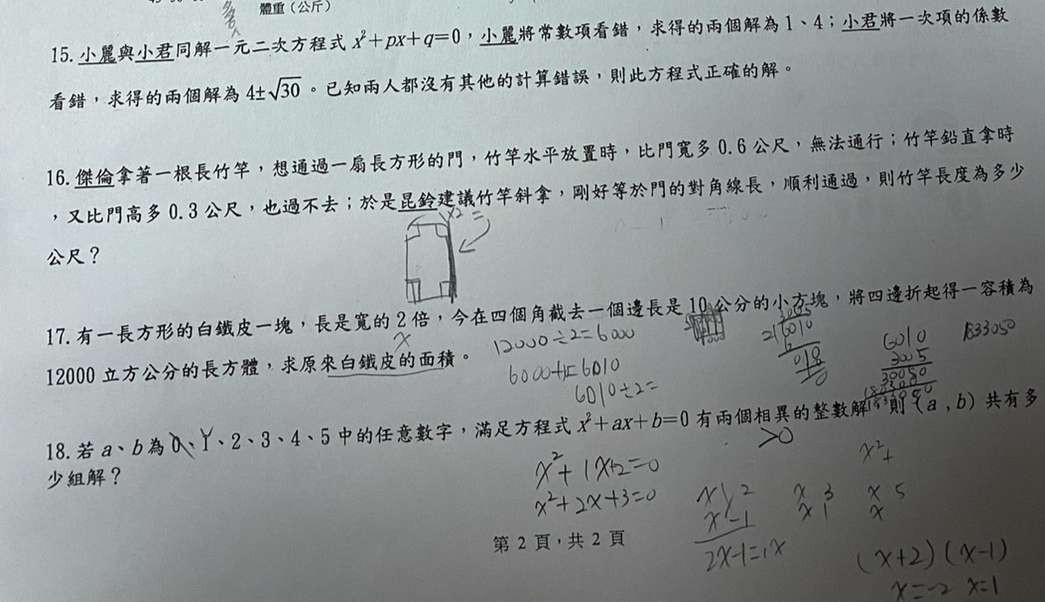 體重（公斤）
15. 小麗與小君同解一元二次方程式 x²+px+q=0，小麗將常數項看錯，求得的兩個解為 1、4；小君將一次項的係數
看錯，求得的兩個解為 4±√30。已知兩人都沒有其他的計算錯誤，則此方程式正確的解。
16. 傑倫拿著一根長竹竿，想通過一扇長方形的門，竹竿水平放置時，比門寬多 0.6 公尺，無法通行；竹竿鉛直拿時
，又比門高多 0.3 公尺，也過不去；於是昆鈴建議竹竿斜拿，剛好等於門的對角線長，順利通過，則竹竿長度為多少
公尺？
17. 有一長方形的白鐵皮一塊，長是寬的 2 倍，今在四個角截去一個邊長是 10 公分的小方塊，將四邊折起得一容積為
12000 立方公分的長方體，求原來白鐵皮的面積。
x
12000÷2=6000
6010÷2=
2005
6010
3005
1833050
18. 若 a、b 為 0、1、2、3、4、5 中的任意數字，滿足方程式 x²+ax+b=0 有兩個相異的整數解，則（a , b）共有多
少組解？
>0
x²+
x²+1x+2=0
x²+2x+3=0
x 2
x -1
2x-1=1x
x 3
x 1
x 5
x
(x+2)(x-1)
x=-2 x=1
第 2 頁，共 2 頁